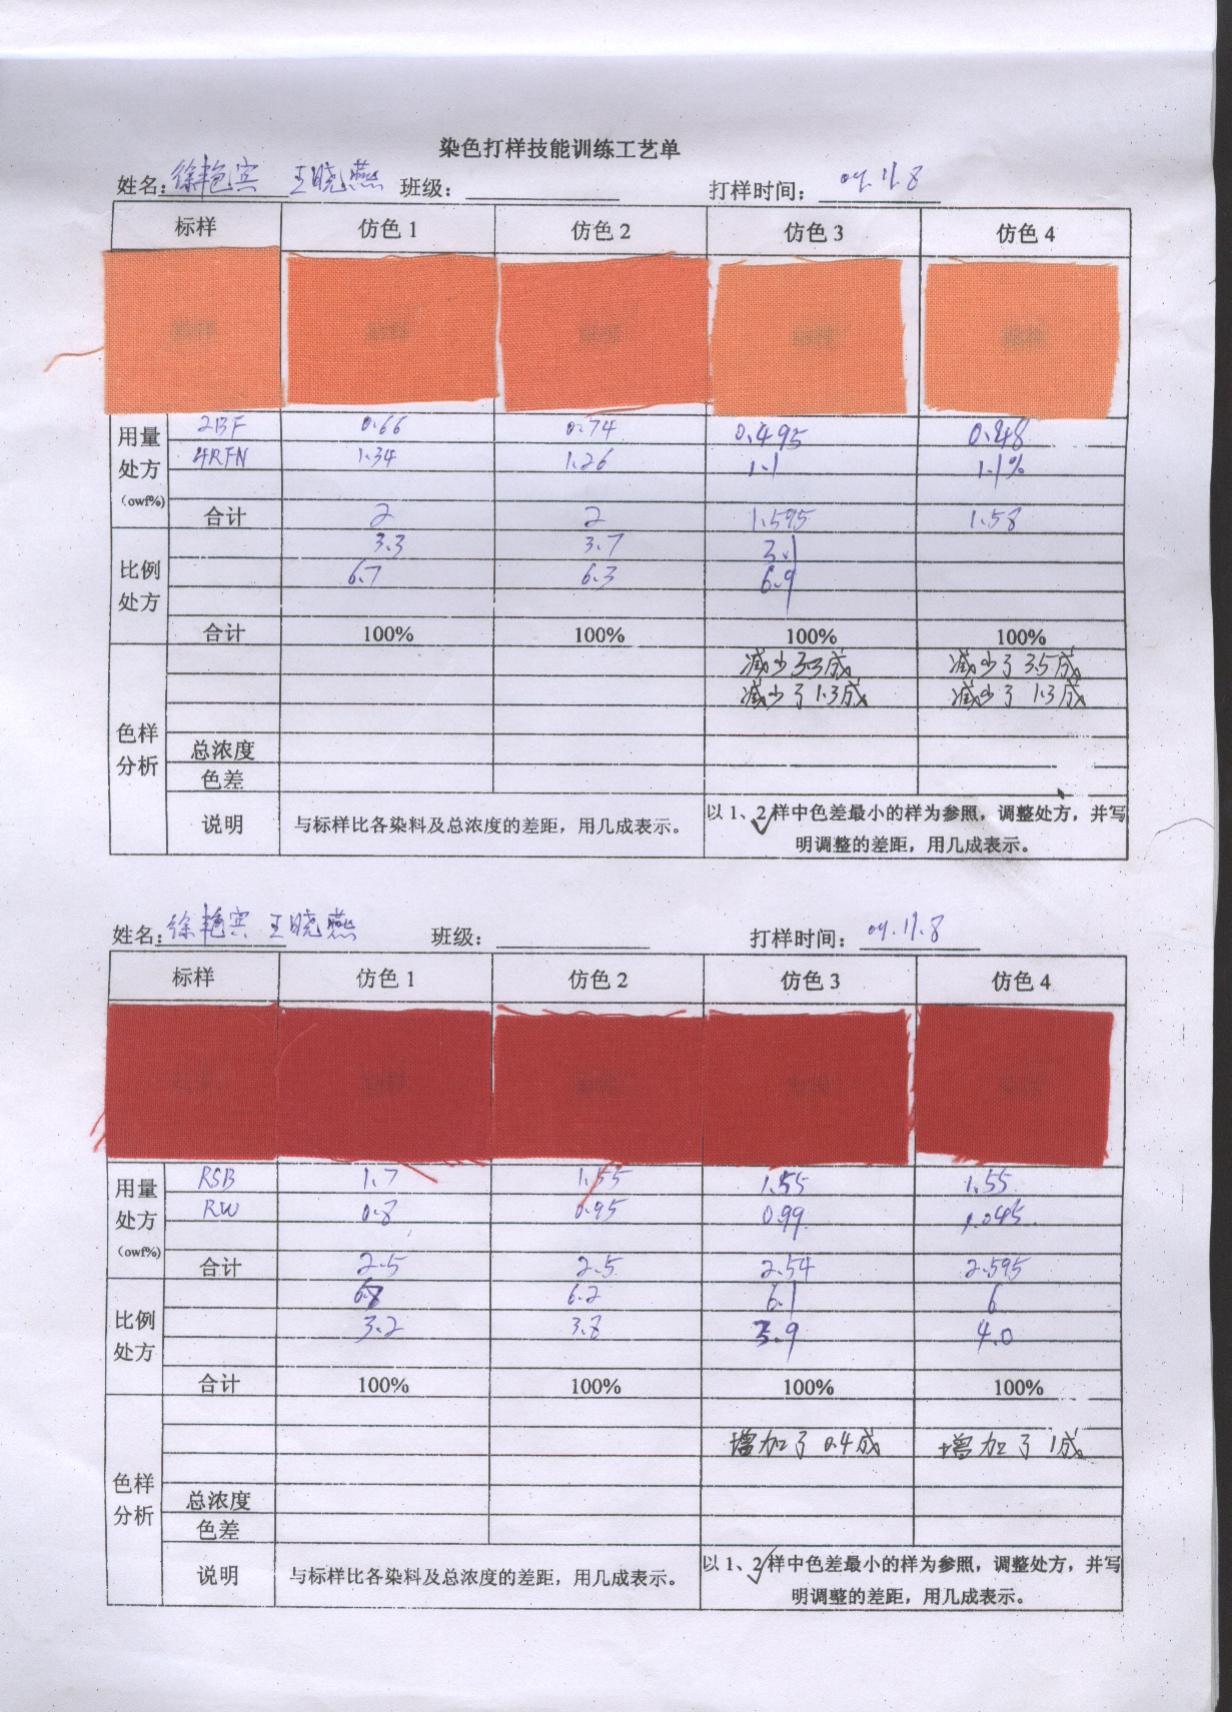 染色打样技能训练工艺单
姓名: 徐艳宾 王晓燕 班级: 打样时间: 09.11.8
标样 仿色1 仿色2 仿色3 仿色4
用量处方(owf%)
2BF 0.66 0.74 0.495 0.48
4RFN 1.34 1.26 1.1 1.1%
合计 2 2 1.595 1.58
比例处方
3.3 3.7 3.1
6.7 6.3 6.9
合计 100% 100% 100% 100%
色样分析
减少了3.3成 减少了3.5成
减少了1.3成 减少了1.3成
总浓度
色差
说明 与标样比各染料及总浓度的差距，用几成表示。 以1、2样中色差最小的样为参照，调整处方，并写
明调整的差距，用几成表示。
姓名: 徐艳宾 王晓燕 班级: 打样时间: 09.11.8
标样 仿色1 仿色2 仿色3 仿色4
用量处方(owf%)
RSB 1.7 1.55 1.55 1.55
RW 0.8 0.95 0.99 1.045
合计 2.5 2.5 2.54 2.595
比例处方
6.8 6.2 6.1 6
3.2 3.8 3.9 4.0
合计 100% 100% 100% 100%
色样分析
增加了0.4成 增加了1成
总浓度
色差
说明 与标样比各染料及总浓度的差距，用几成表示。 以1、2样中色差最小的样为参照，调整处方，并写
明调整的差距，用几成表示。